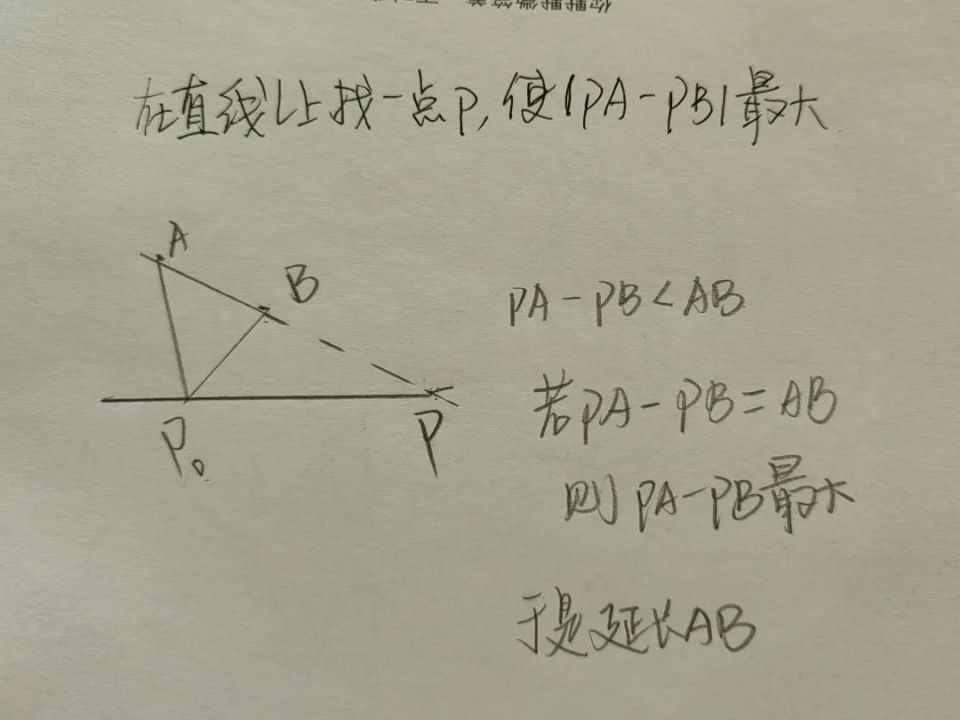 在直线l上找一点P,使|PA-PB|最大
A
B
P₀
P
PA-PB<AB
若PA-PB=AB
则PA-PB最大
于是延长AB